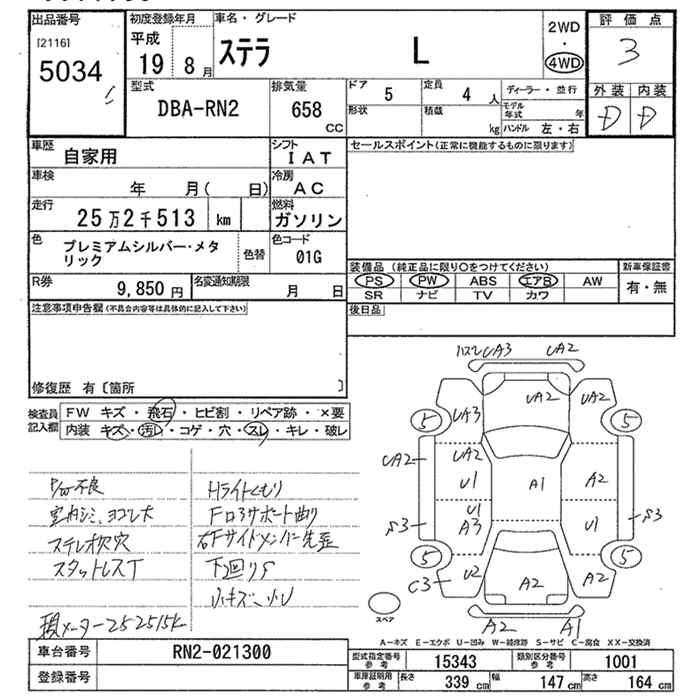 出品番号
[2116]
5034
初度登録年月
平成 19 8月
車名・グレード
ステラ L
2WD
・
4WD
評価点
3
外装 内装
D D
型式
DBA-RN2
排気量
658 CC
ドア 5
定員 4 人
形状
積載 kg
ディーラー・並行
モデル年式 年
ハンドル 左・右
車歴 自家用
シフト IAT
車検 年 月( 日)
冷房 AC
走行 25万2千513 km
燃料 ガソリン
色 プレミアムシルバー・メタリック
色替
色コード 01G
R券 9,850円
名変通知期限 月 日
セールスポイント(正常に機能するものに限ります)
装備品 (純正品に限り○をつけてください)
新車保証書
PS PW ABS エアB AW
有・無
SR ナビ TV カワ
後日品
注意事項申告欄(不具合内容等は具体的に記入して下さい)
修復歴 有〔箇所 〕
検査員記入欄
FW キズ・飛石・ヒビ割・リペア跡・×要
内装 キズ・汚れ・コゲ・穴・スレ・キレ・破レ
P/W不良
室内シミ、ヨゴレ大
ステレオ欠穴
スタットレスT
現メーター252515K
Hライトくもり
Fロアサポート曲り
右Fサイドメンバー先歪
下回りS
小キズ、小U
UA3 UA2
UA3
UA2
UA2
5 5
UA2
UA2
U1
A1
A2
U1
A3
U1
S3
S3
5 5
C3
U2
A2
A2
スペア
A2 A1
A-キズ E-エクボ U-凹み W-補修跡 S-サビ C-腐食 XX-交換済
車台番号 RN2-021300
登録番号
型式指定番号 参考 15343
類別区分番号 参考 1001
車庫証明用 参考
長さ 339cm
幅 147cm
高さ 164cm